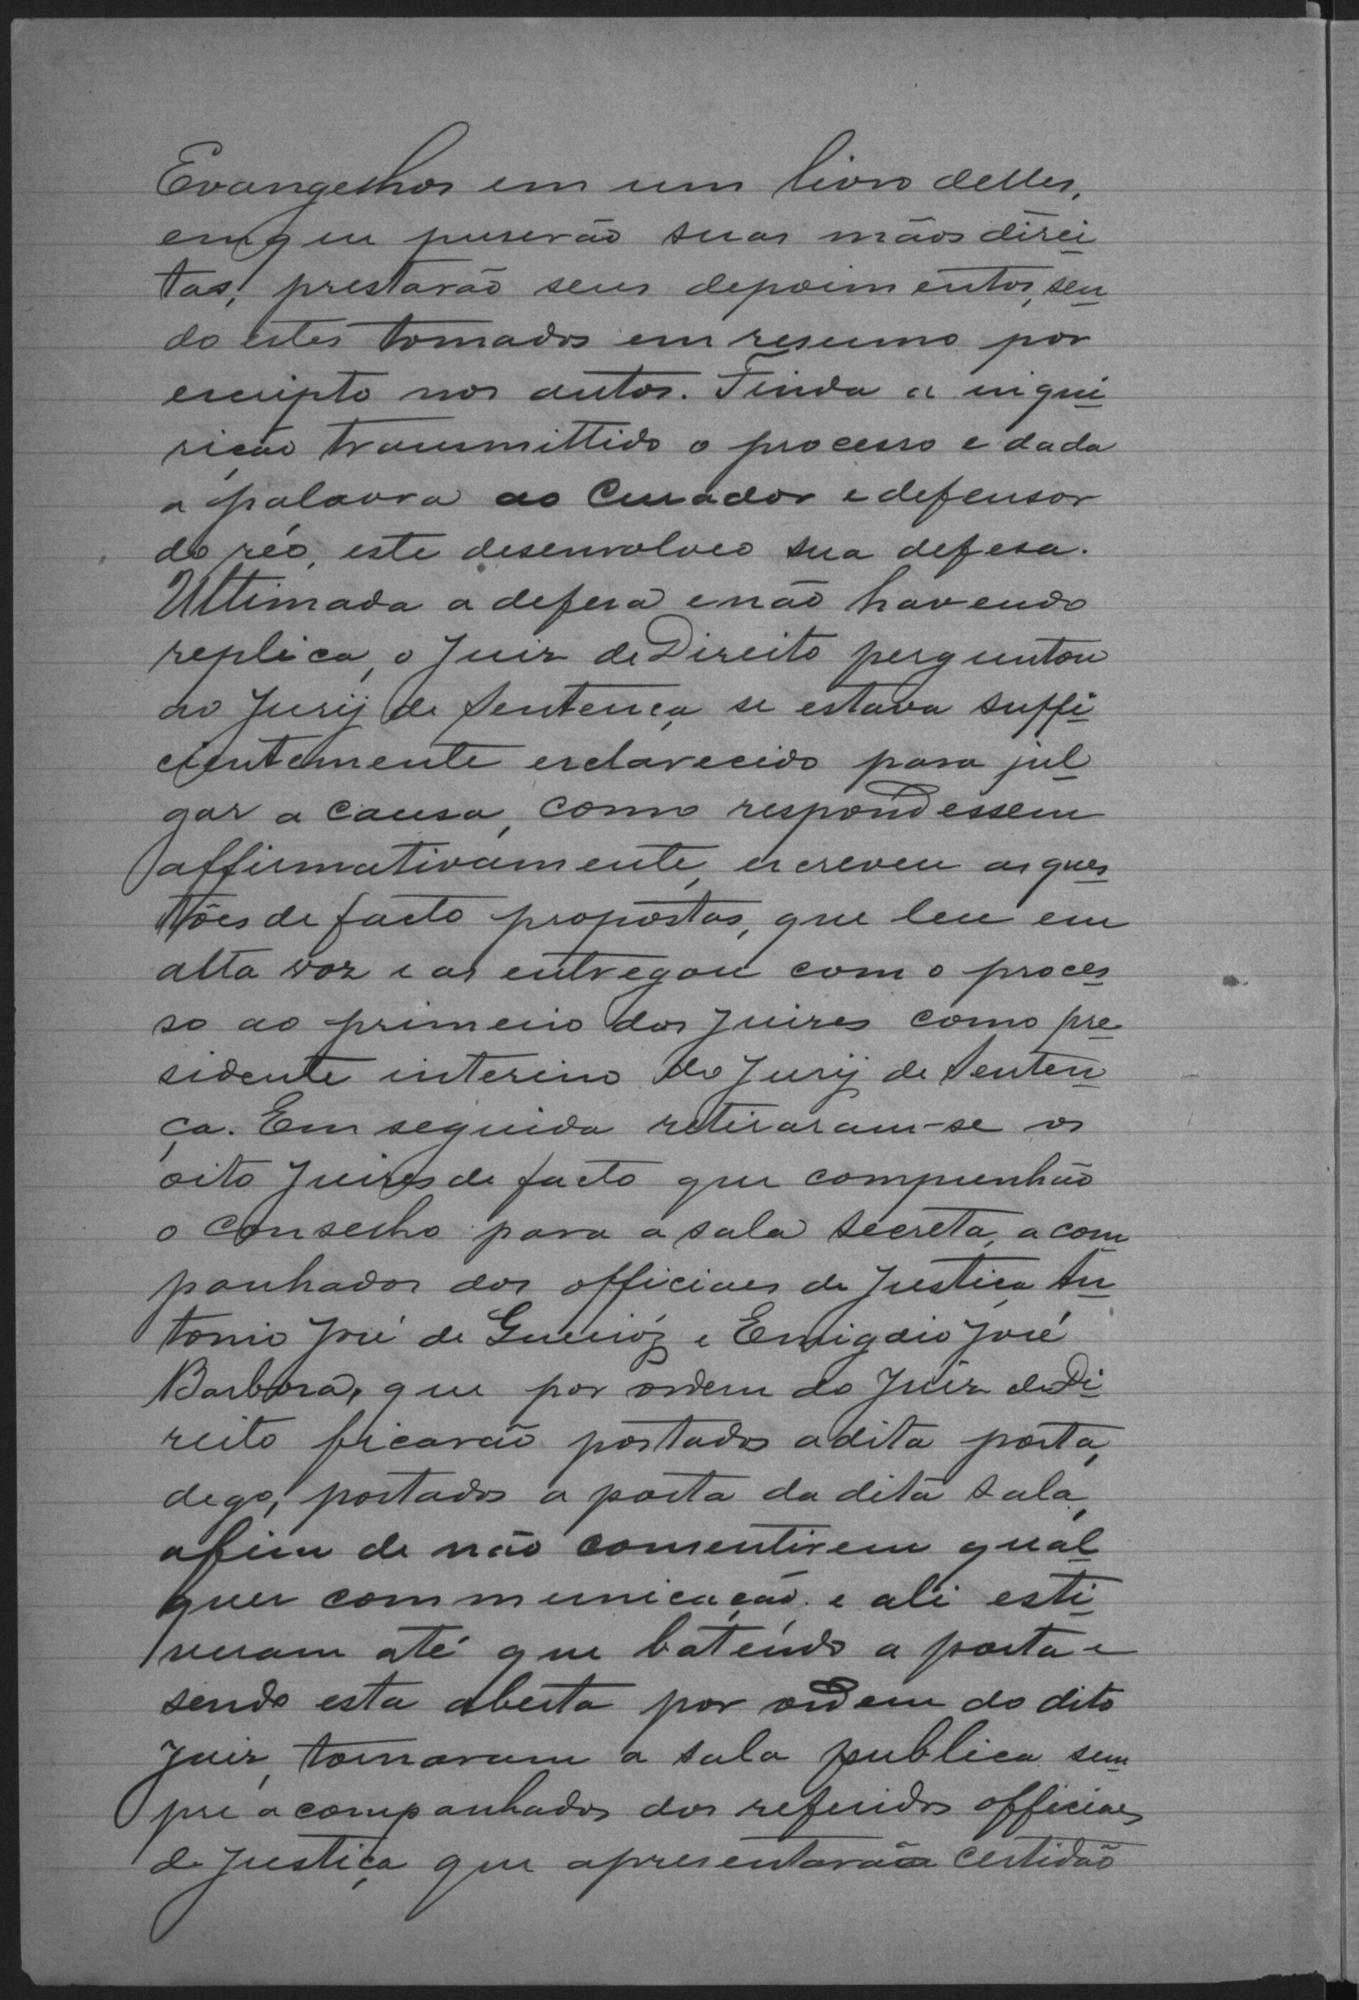 Evangelhos em um livro delles,
em que puserão suas mãos direi
tas, prestarão seus depoimentos, sen
do estes tomados em resumo por
escripto nos autos. Finda a inqui
rição transmittido o processo e dada
a palavra ao Curador e defensor
do réo, este desenvolveo sua defesa.
Ultimada a defesa e não havendo
replica, o Juiz de Direito perguntou
ao Jury de Sentença se estava suffi
cientemente esclarecido para jul
gar a causa, como respondessem
affirmativamente, escreveu as ques
tões de facto propostas, que leu em
alta voz e as entregou com o proces
so ao primeiro dos Juizes como pre
sidente interino do Jury de Senten
ça. Em seguida retiraram-se os
oito Juizes de facto que compunhão
o conselho para a sala secreta, acom
panhados dos officiaes de Justiça An
tonio José de Queiróz e Emigdio José
Barbosa, que por ordem do Juiz de Di
reito ficarão postados a dita porta,
digo, postados a porta da dita sala,
afim de não consentirem qual
quer communicação e ali esti
veram até que batendo a porta e
sendo esta aberta por ordem do dito
Juiz, tornaram a sala publica sem
pre acompanhados dos referidos officiaes
de Justiça que apresentarão certidão